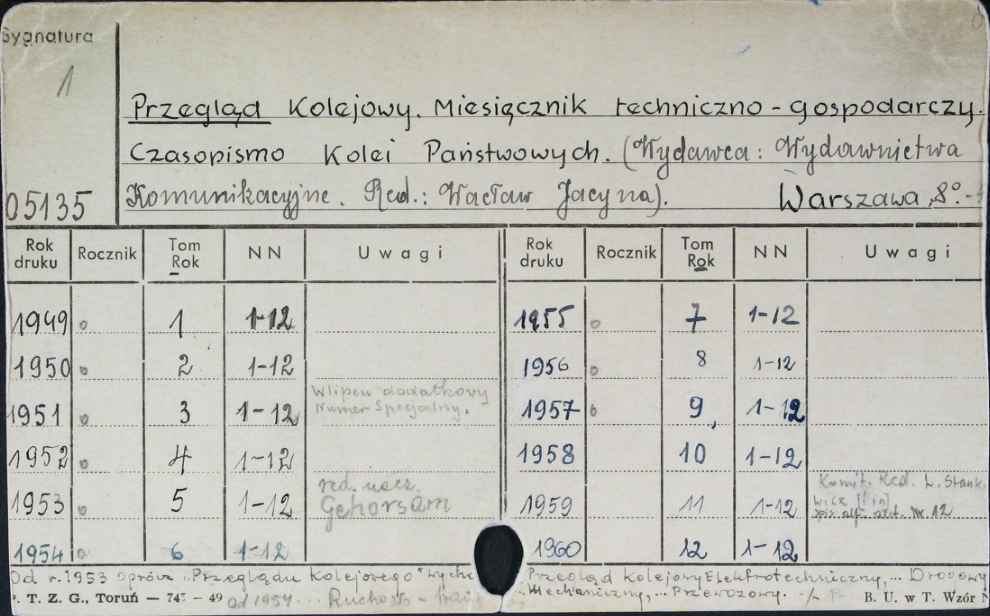 Sygnatura
1
Przegląd Kolejowy. Miesięcznik techniczno-gospodarczy.
Czasopismo Kolei Państwowych. (Wydawca: Wydawnictwa
05135 Komunikacyjne. Red.: Wacław Jacyna). Warszawa, 8°.-
Rok druku Rocznik Tom Rok NN Uwagi Rok druku Rocznik Tom Rok NN Uwagi
1949 o 1 1-12 1955 o 7 1-12
1950 o 2 1-12 1956 o 8 1-12
1951 o 3 1-12 W lipcu dodatkowy Numer Specjalny. 1957 o 9, 1-12
1952 o 4 1-12 1958 10 1-12
1953 o 5 1-12 red. nacz. Gehorsam 1959 11 1-12 Komit. Red. L. Stank. nr. 12
1954 o 6 1-12 1960 12 1-12
Od r. 1953 oprócz "Przeglądu Kolejowego" Przegląd Kolejowy Elektrotechniczny, ... Drogowy
P. T. Z. G., Toruń — 745 — 49 od 1954 ... Mechaniczny, ... Przewozowy. B. U. w T. Wzór